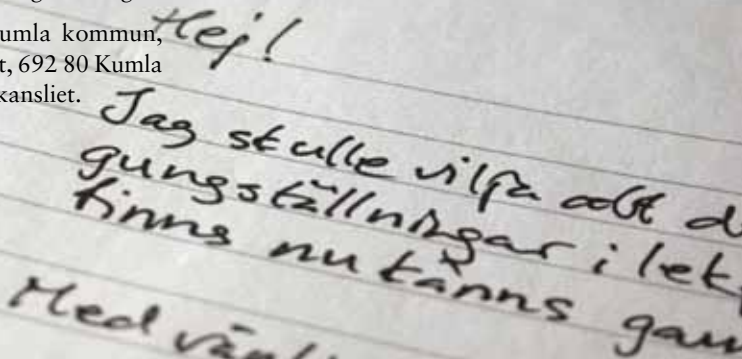 umla kommun,
t, 692 80 Kumla
kansliet.
Hej!
Jag skulle vilja att d
gungställningar i lek
finns nu känns gam
Med vänl